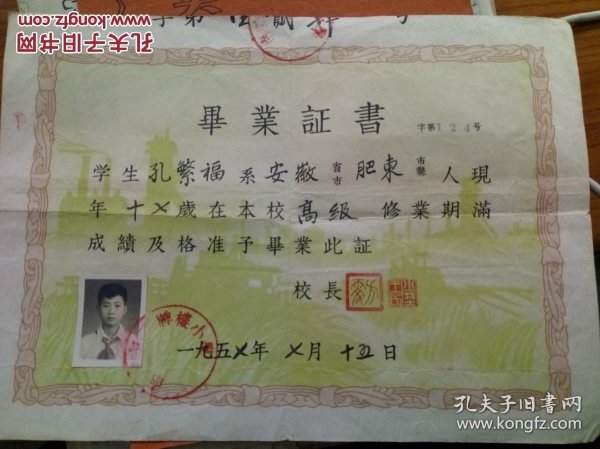 孔夫子旧书网
www.kongfz.com
字第
号
畢業証書
字第124号
学生孔繁福系安徽省市肥東市縣人現
年十七歲在本校高级修業期滿
成績及格准予畢業此証
校長
一九五七年七月十五日
孔夫子旧书网
www.kongfz.com